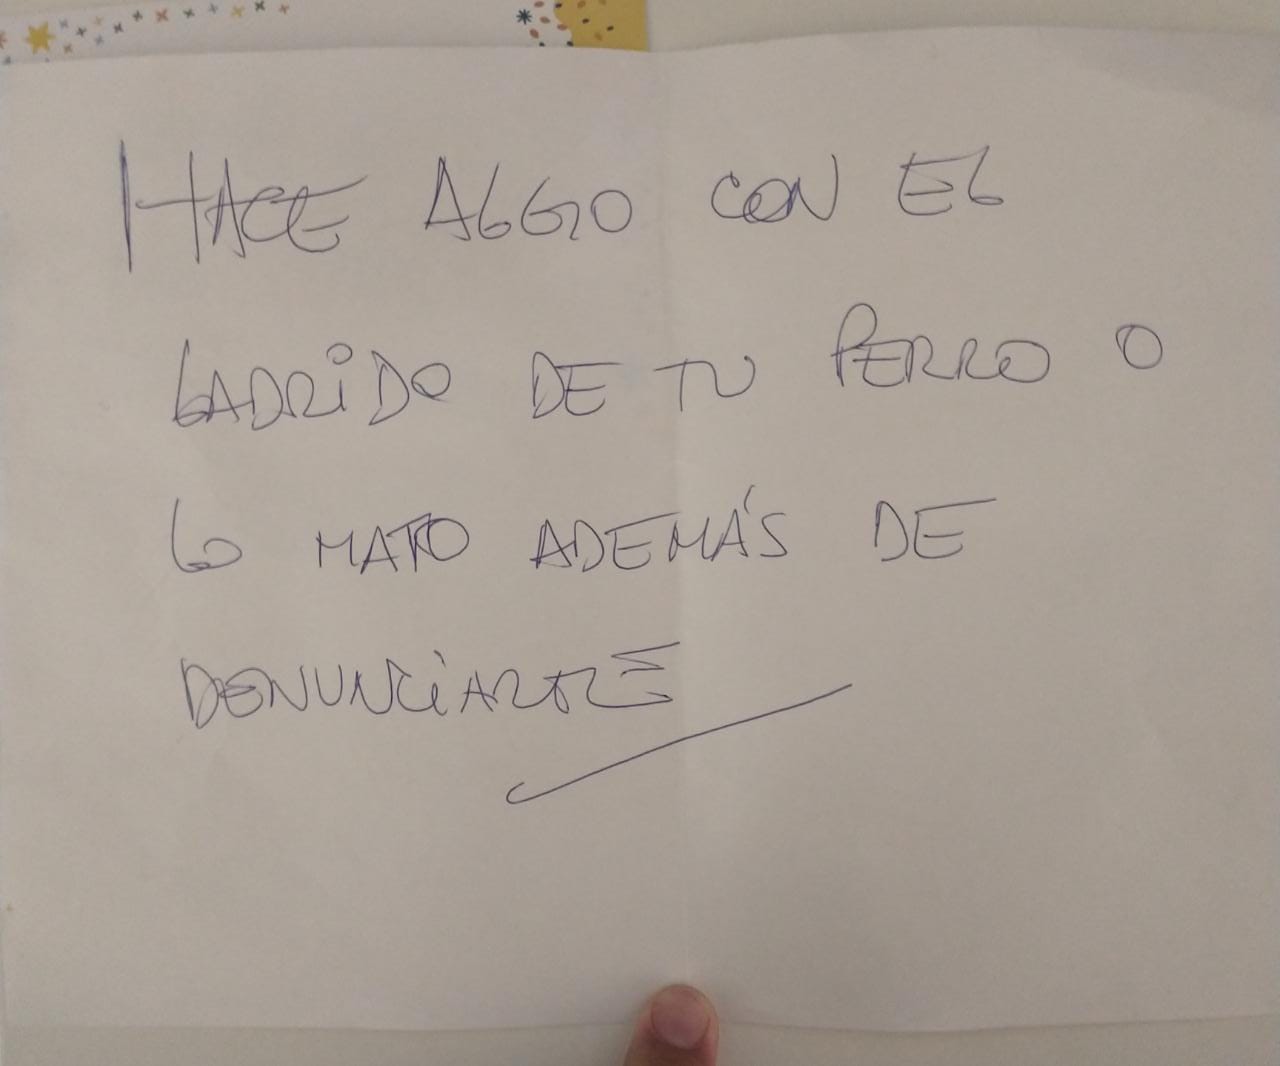 HACE ALGO CON EL
LADRIDO DE TU PERRO O
LO MATO ADEMÁS DE
DENUNCIARTE